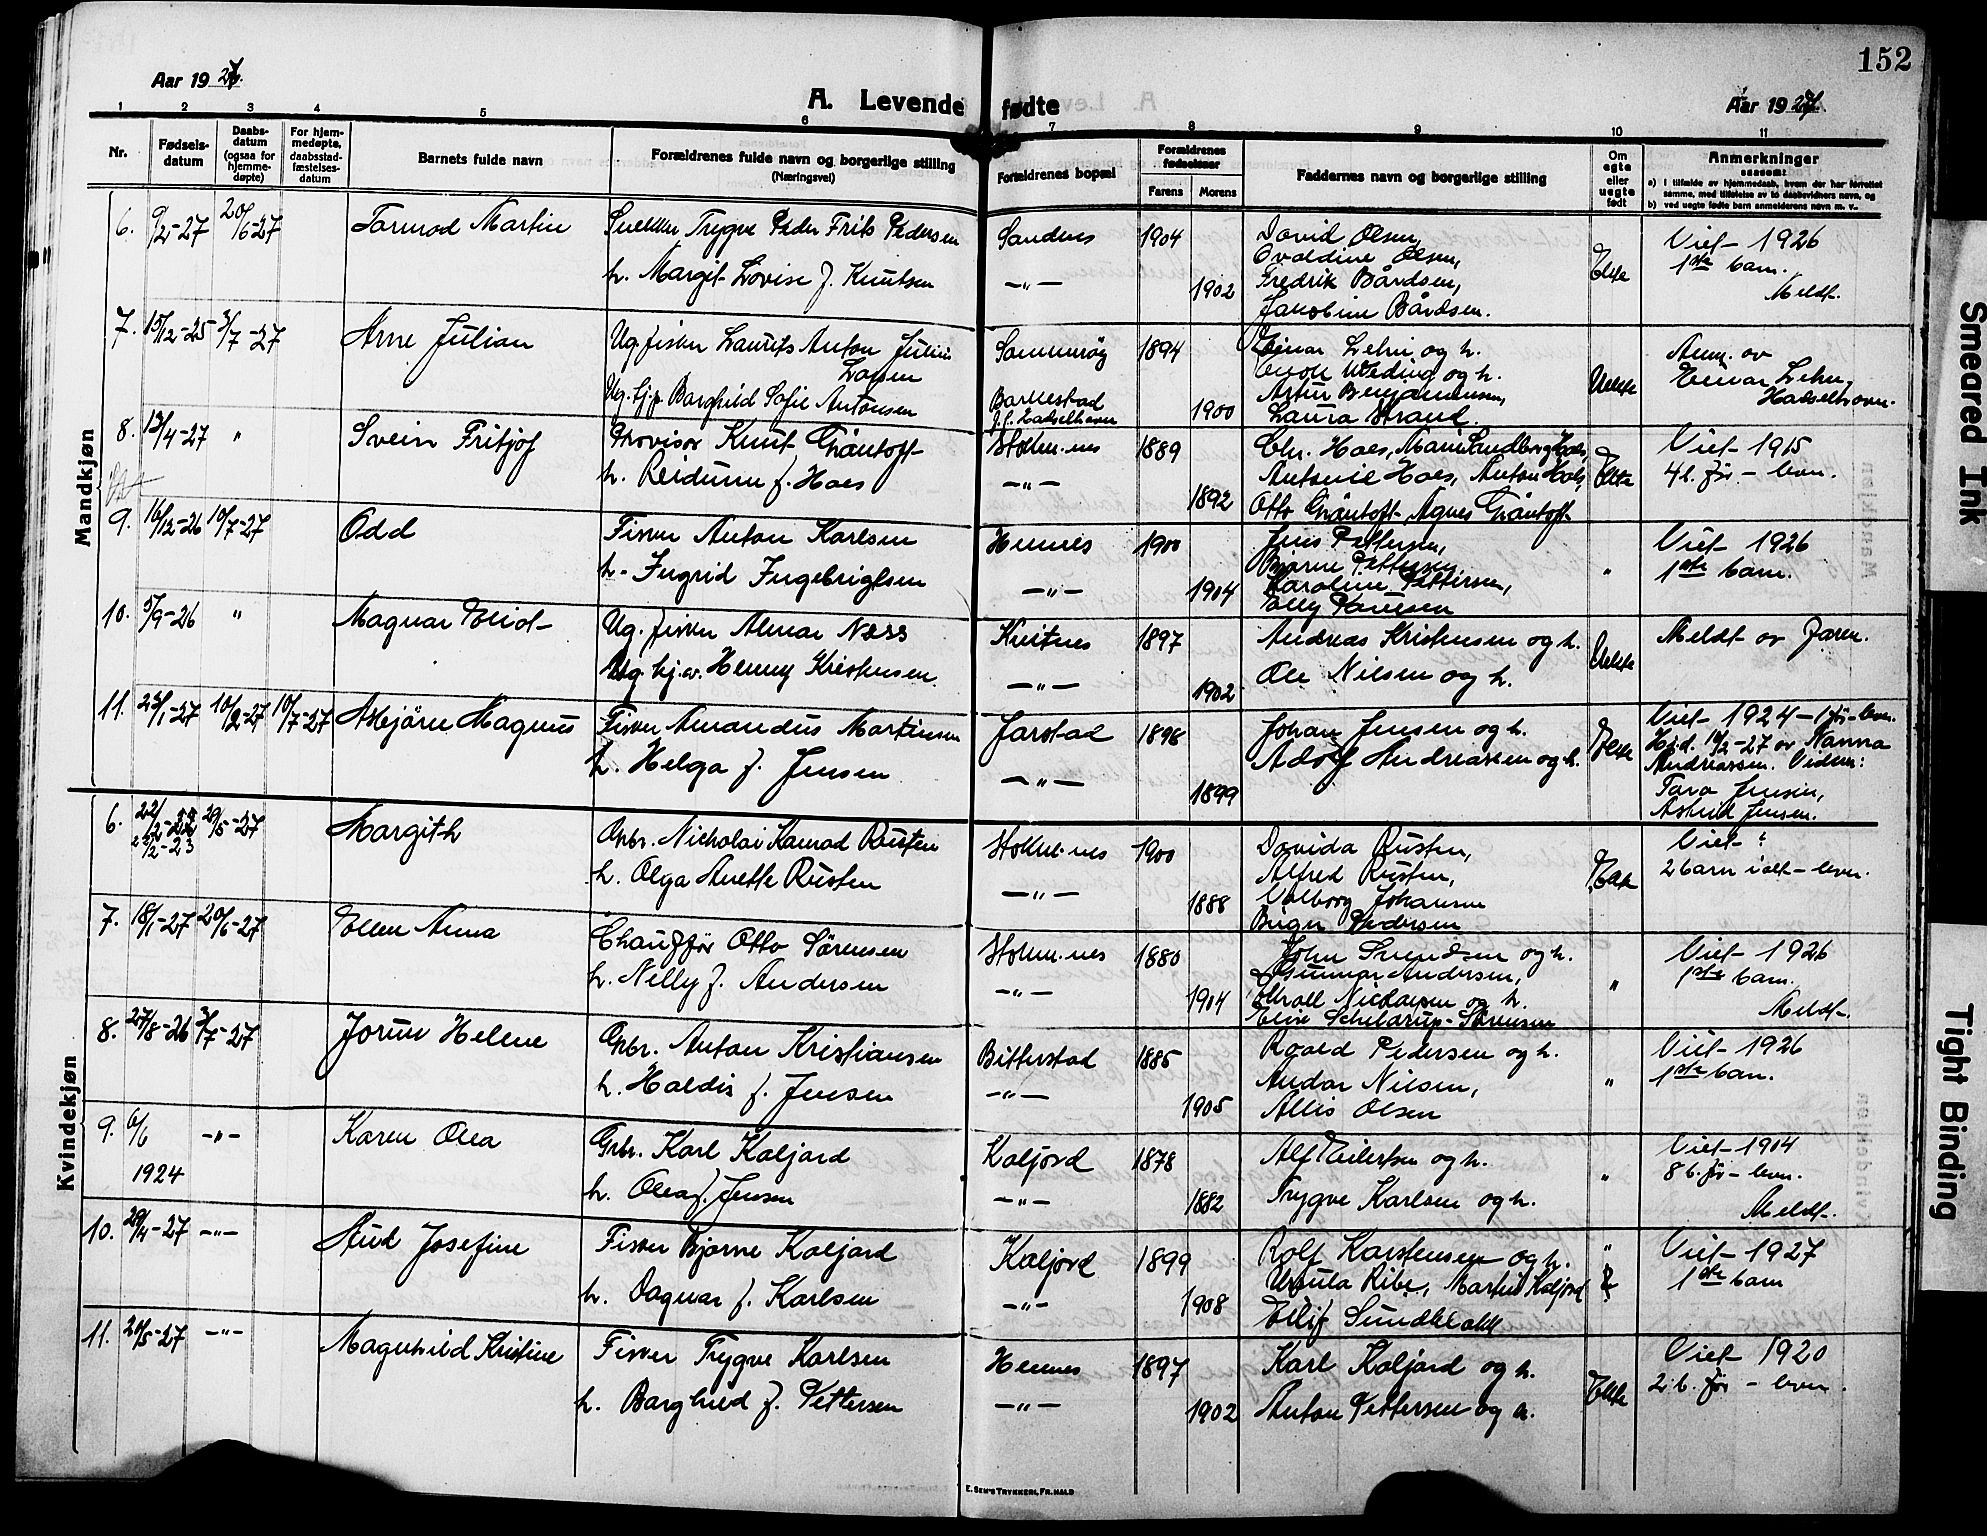 152
Aar 1927.
A. Levende fødte
Aar 1927.
1 2 3 4 5 6 7 8 9 10 11
Nr.
Fødselsdatum
Daabsdatum (ogsaa for hjemmedøpte)
For hjemmedøpte, daabsstadfæstelsesdatum
Barnets fulde navn
Forældrenes fulde navn og borgerlige stilling (Næringsvei)
Forældrenes bopæl
Forældrenes fødselsaar
Farens Morens
Faddernes navn og borgerlige stilling
Om egte eller uegte født
Anmerkninger
saasom:
a) i tilfælde av hjemmedaab, hvem der har forrettet samme, med tilføielse av to daabsvidners navn, og
b) ved uegte fødte barn anmelderens navn m. v.
Mandkjøn
6. 9/2-27 20/6-27 Tormod Martin
Snekker Trygve Peder Frits Pedersen
h. Margit Lovise f. Knutsen
Sandnes 1904
-"- 1902
David Olsen,
Ovaldine Olsen,
Fredrik Bårdsen,
Jakobine Bårdsen.
Ekte
Viet 1926
1ste barn.
Meldt.
7. 15/12-25 3/7-27 Arne Julian
Ug. fisker Laurits Anton Julius
Larsen
Ug. hj.p. Borghild Sofie Antonsen
1894
1900
Einar Lehn og h.
Artur Benjaminsen,
Laura Strand.
Uekte
Anm. av
Einar Lehn,
Hadselhavn.
8. 13/4-27 " Svein Fritjof
Provisor Knut Gräntoft
h. Reidunn f. Hals
Stokm.nes 1889
-"- 1892
Chr. Hals, Marie Sundberg Hals,
Antonie Hals, Anton Hals,
Otto Gräntoft, Agnes Gräntoft
Ekte
Viet 1915
4 b. før - lever.
9. 16/12-26 10/7-27 Odd
Fisker Anton Karlsen
h. Ingrid Ingebrigtsen
Hennes 1900
-"- 1904
Jens Pettersen,
Bjarne Pettersen,
Karoline Pettersen,
"
Viet 1926
1ste barn.
10. 5/9-26 " Magnar Eliot
Ug. fisker Almar Næss
Ug. hj.v. Henny Kristensen
Kvitnes 1897
-"- 1902
Andreas Kristensen og h.
Ole Nilsen og h.
Uekte
Meldt av faren.
11. 23/1-27 10/2-27 10/7-27 Asbjörn Magnus
Fisker Amandus Martinsen
h. Helga f. Jensen
Jarstad 1898
-"- 1899
Johan Jensen og h.
Adolf Andreassen og h.
Ekte
Viet 1924 - 1 før - lever.
Hj.d. 10/2-27 av Nanna
Andreassen. Vidner:
Tora Jensen,
Astrid Jensen.
Kvindekjøn
6. 22/12-23 29/5-27 Margith
Grbr. Nicholai Konrad Rusten
h. Olga Anette Rusten
Stokm.nes 1900
-"- 1888
Davida Rusten,
Alfred Rusten,
Valborg Johansen
Birger Pedersen
Ekte
Viet
2 barn ialt - lever.
7. 18/1-27 20/6-27 Ellen Anna
Chauffør Otto Sörensen
h. Nelly f. Andersen
Stokm.nes 1880
-"- 1904
John Svendsen og h.
Gunnar Andersen,
Elise Schelderup-Sörensen
"
Viet 1926
1ste barn.
Meldt.
8. 27/8-26 3/7-27 Jorun Helene
Grbr. Anton Kristiansen
h. Haldis f. Jensen
Bitterstad 1885
-"- 1905
Roald Pedersen og h.
Andor Nilsen,
Allis Olsen
"
Viet 1926
1ste barn.
9. 6/6 1924 -"- Karen Olea
Grbr. Karl Kaljord
h. Olea f. Jensen
Kaljord 1878
-"- 1882
Alf Eilertsen og h.
Trygve Karlsen og h.
"
Viet 1904
8 b. før - lever.
Meldt.
10. 29/4-27 -"- Aud Josefine
Fisker Bjarne Kaljord
h. Dagmar f. Karlsen
Kaljord 1899
-"- 1908
Rolf Karstensen og h.
Ursula Ribe, Martin Kaljord
Eilif Sundklakk
"
Viet 1927
1ste barn
11. 20/5-27 -"- Magnhild Kristine
Fisker Trygve Karlsen
h. Borghild f. Pettersen
Hennes 1897
-"- 1902
Karl Kaljord og h.
Anton Pettersen og h.
Ekte
Viet 1920
2 b. før - lever.
E. Sem's Trykkeri, Fr.hald
Smeared Ink
Tight Binding